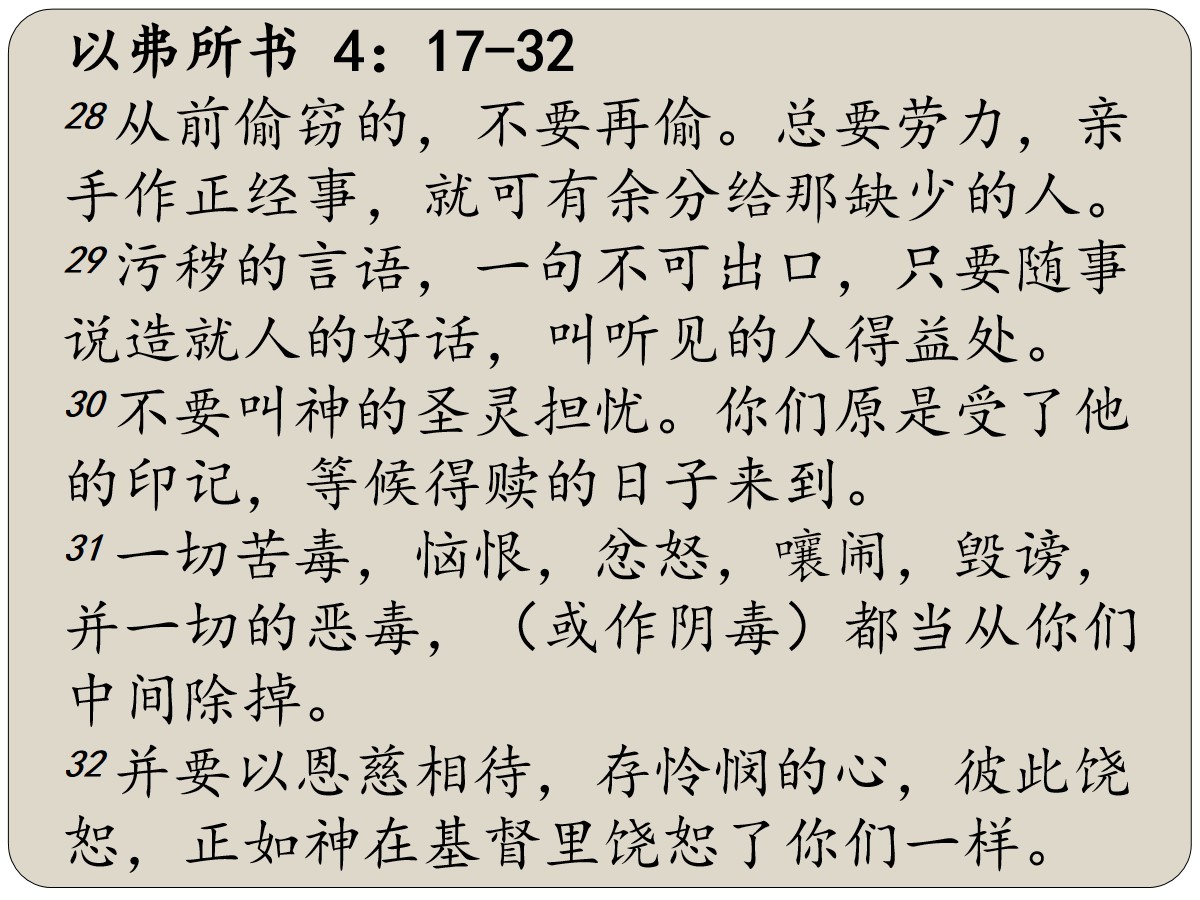 以弗所书 4：17-32
28 从前偷窃的，不要再偷。总要劳力，亲
手作正经事，就可有余分给那缺少的人。
29 污秽的言语，一句不可出口，只要随事
说造就人的好话，叫听见的人得益处。
30 不要叫神的圣灵担忧。你们原是受了他
的印记，等候得赎的日子来到。
31 一切苦毒，恼恨，忿怒，嚷闹，毁谤，
并一切的恶毒，（或作阴毒）都当从你们
中间除掉。
32 并要以恩慈相待，存怜悯的心，彼此饶
恕，正如神在基督里饶恕了你们一样。